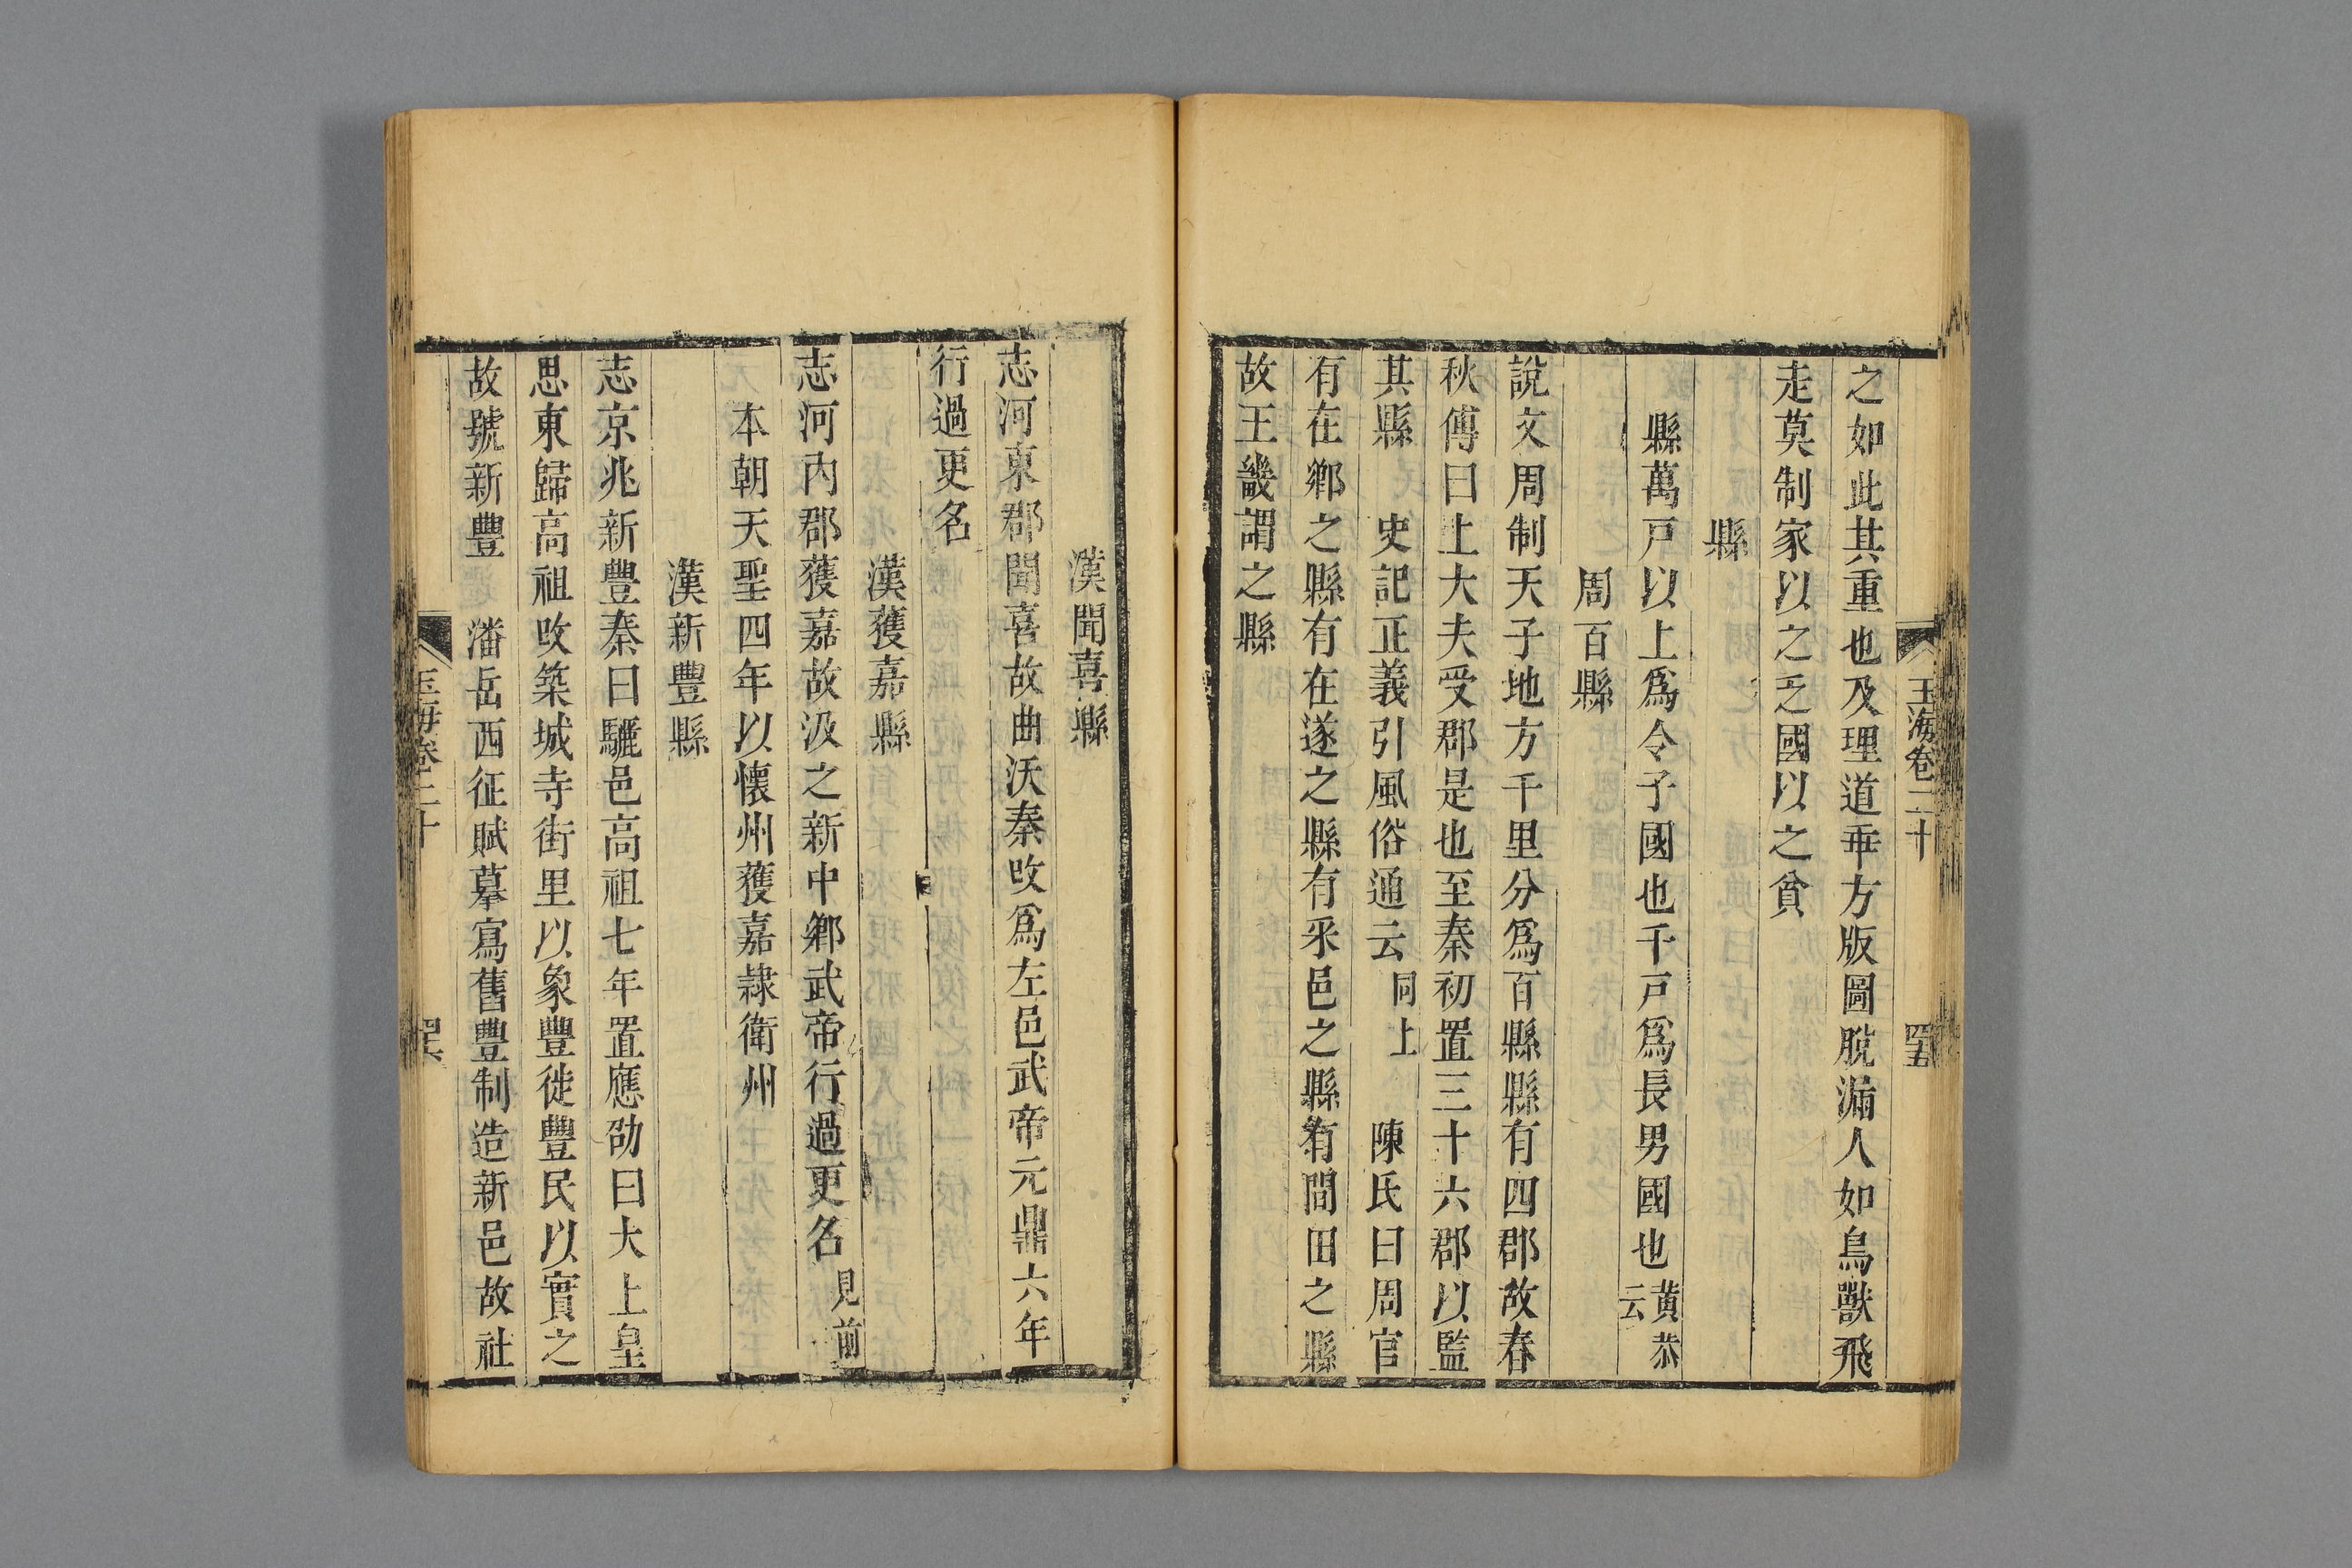 玉海卷二十
四五
之如此其重也及理道乖方版圖脫漏人如鳥獸飛
走莫制家以之乏國以之貧
縣
縣萬戸以上爲令子國也千戸爲長男國也黃恭云
周百縣
說文周制天子地方千里分爲百縣縣有四郡故春
秋傳曰上大夫受郡是也至秦初置三十六郡以監
其縣　史記正義引風俗通云同上　陳氏曰周官
有在鄉之縣有在遂之縣有采邑之縣有間田之縣
故王畿謂之縣
漢聞喜縣
志河東郡聞喜故曲沃秦改爲左邑武帝元鼎六年
行過更名
漢獲嘉縣
志河內郡獲嘉故汲之新中鄉武帝行過更名見前
本朝天聖四年以懷州獲嘉隷衛州
漢新豐縣
志京兆新豐秦曰驪邑高祖七年置應劭曰大上皇
思東歸高祖改築城寺街里以象豐徙豐民以實之
故號新豐　潘岳西征賦摹寫舊豐制造新邑故社
玉海卷二十